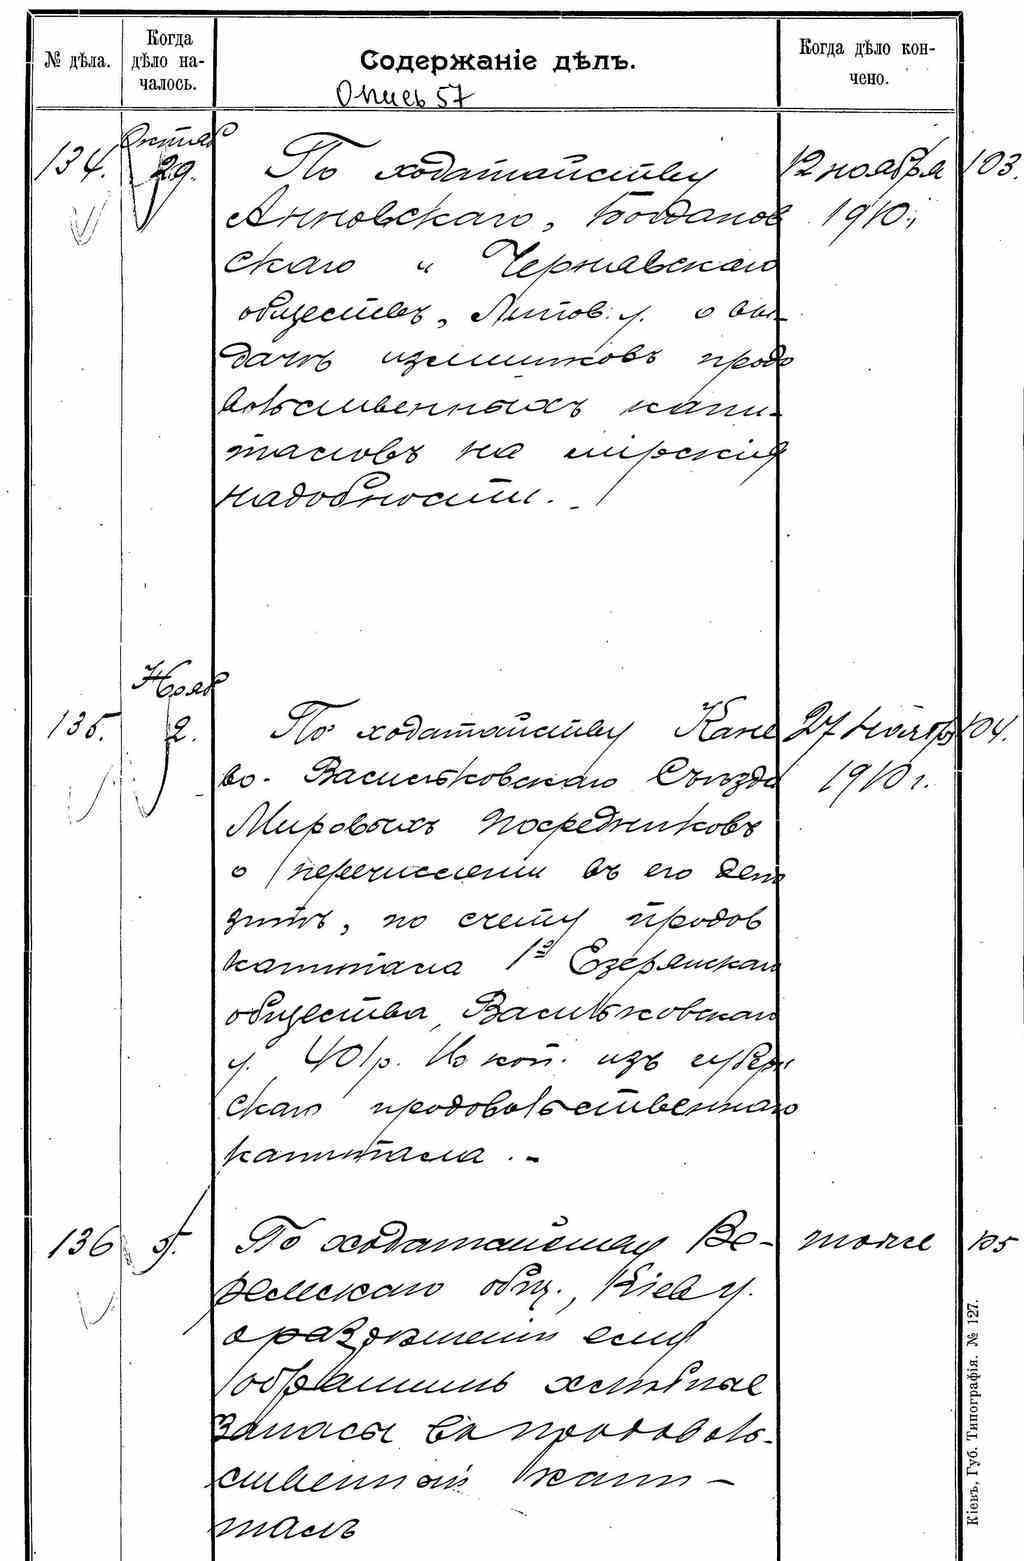 № дѣла.
Когда дѣло началось.
Содержаніе дѣлъ.
Когда дѣло кончено.
Опись 57
134.
Октяб
29.
По ходатайству
Анновскаго, Богданов
скаго и Чернявскаго
обществъ, Липов. у. о вы-
дачѣ излишковъ продо
вольственныхъ капи-
таловъ на мірскія
надобности.
12 ноября
1910 г.
103.
135.
Нояб
2.
По ходатайству Кане
во-Васильковскаго Съѣзда
Мировыхъ Посредниковъ
о перечисленіи въ его депо
зитъ, по счету продов
капитала 1го Езерянскаго
общества, Васильковскаго
у. 401 р. коп. из губерн
скаго продовольственнаго
капитала.-
27 Ноября
1910 г.
104.
136
5.
По ходатайству Ве-
ремскаго общ., Кіев у.
о разрѣшеніи ему
обратить хлѣбные
запасы въ продоволь-
ственный капи-
талъ
тоже
105
Кіевъ, Губ. Типографія. № 127.